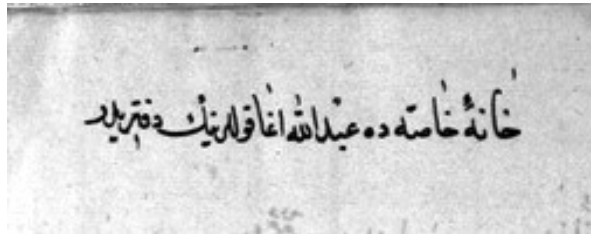 خانهٔ خاصه ده عبدالله اغا قولرینك دفتریدر